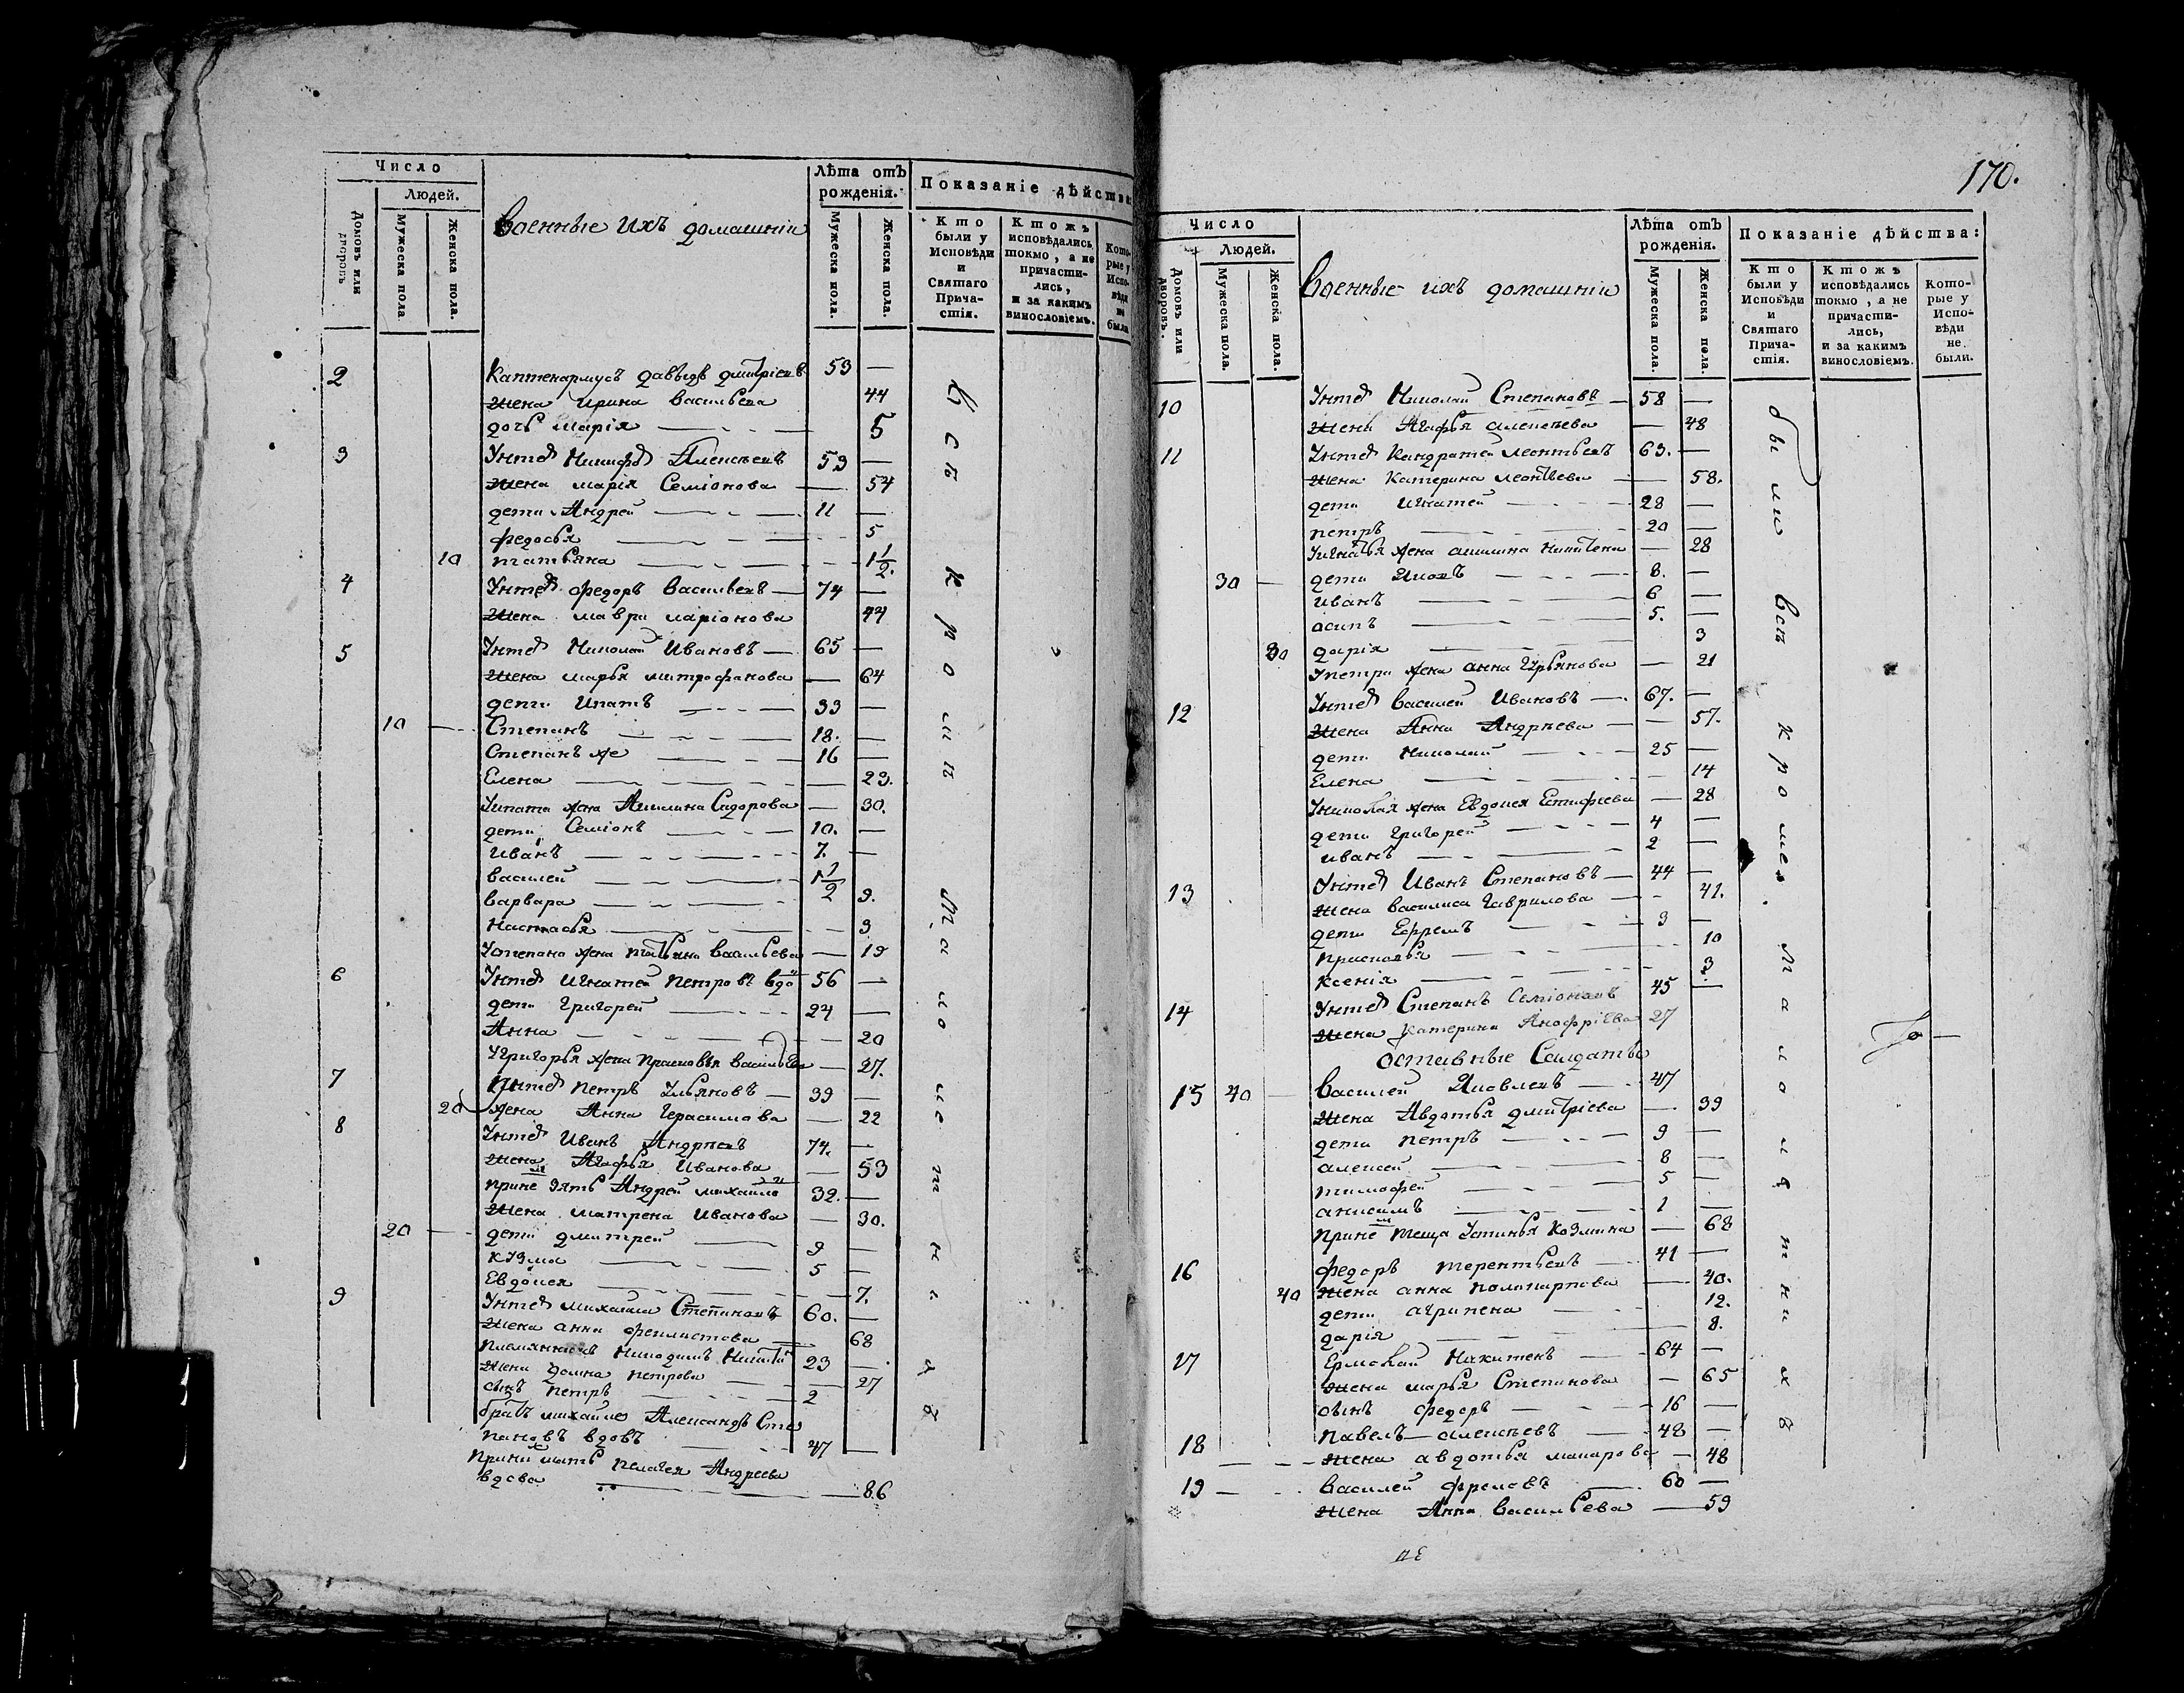 Число
Людей.
Домовъ или дворовъ
Мужеска пола.
Женска пола.
Военные ихъ домашніи
Лѣта отъ рожденія.
Мужеска пола.
Женска пола.
Показаніе дѣйства:
Кто были у Исповѣди и Святаго Прича-стія.
Ктожъ исповѣдались токмо, а не причасти-лись, и за какимъ винословіемъ.
Кото-рые у Испо-вѣди не были
2 Каптенармусъ давыдъ дмитріевъ 53 —
жена Ирина васильева 44
дочь марія — 5
3 Унтеръ Никифоръ Алексѣевъ 53 —
жена марія Семіонова — 54
дети Андрей — 11 —
федосья — 5
10 татьяна — 1 1/2.
4 Унтеръ федоръ васильевъ — 74 —
жена мавра маріонова 44
5 Унтеръ Николай Ивановъ — 65 —
жена марья митрофанова — 64
дети Ипатъ — 33 —
10 — Степанъ — 18. —
Степанъ же — 16 —
Елена — 23.
Уипата жена Акилина Сидорова — 30.
дети Семіонъ — 10. —
Иванъ — 7. —
василей — 1 1/2
варвара — 9.
Настасья — 3
Устепана жена татьяна васильева — 19
6 Унтеръ Игнатей петровъ вдо 56 —
дети Григорей — 24 —
Анна — 20
Угригорья жена прасковья васильева — 27.
7 Унтеръ петръ Ульяновъ — 39 —
20 жена Анна Герасимова — 22
8 Унтеръ Иванъ Андреевъ 74. —
жена Агафья Иванова — 53
прине зять Андрей михайло 32. —
жена матрена Иванова — 30.
20 — дети дмитрей — 9 —
кузма — 5 —
Евдокея — 7.
9 Унтеръ михайла Степановъ 60. —
жена анна феклистова — 68
племянникъ Никодимъ Никити 23 —
жена домна петрова — 27
сынъ петръ — 2
братъ михайле Александъ Сте
пановъ вдовъ — 47 —
при ни мать пелагея Андреева
вдова — 86
Всѣ кроми малолетнихъ
170.
Число
Людей.
Домовъ или дворовъ.
Мужеска пола.
Женска пола.
Военные ихъ домашніи
Лѣта отъ рожденія.
Мужеска пола.
Женска пола.
Показаніе дѣйства:
Кто были у Исповѣди и Святаго Прича-стія.
Ктожъ исповѣдались токмо, а не причасти-лись, и за какимъ винословіемъ.
Кото-рые у Испо-вѣди не были.
10 Унтеръ Николай Степановъ — 58 —
жена Агафья алексеева — 48
11 Унтеръ Кандратей леонтьевъ 63. —
жена Катерина леонтьева — 58.
дети Игнатей — 28 —
петръ — 20 —
Уигнатья жена акилина никитена — 28
30 — дети Яковъ — 8. —
иванъ — 6 —
осипъ — 5. —
30 дарія — 3
Упетра жена анна Гурьянова — 21
12 Унтеръ василей Ивановъ — 67. —
жена Анна Андреева — 57.
дети Николай — 25 —
Елена — 14
Униколая жена Евдокея Естифіева — 28
дети григорей — 4 —
иванъ — 2 —
13 Унтеръ Иванъ Степановъ — 44 —
жена василиса Гаврилова — 41.
дети Ефремъ — 9 —
прасковья — 10
ксенія — 3
14 Унтеръ Степанъ Семіоновъ 45 —
жена катерина Анофріева 27
оставные Салдаты
15 40 — Василей Яковлевъ — 47
жена Авдотья дмитріева — 39
дети петръ — 9 —
алексей — 8 —
тимофей — 5 —
анисимъ — 1 —
прине теща Устинья Козмина — 68
16 федоръ терентьевъ — 41 —
40 жена анна поликарпова — 40.
дети агрипена — 12.
дарія — 8.
17 Ермолай Никитенъ — 64 —
жена марья Степанова — 65
сынъ федоръ — 16 —
18 павелъ — алексеевъ — 48 —
жена авдотья макарова — 48
19 — василей фремовъ — 60 —
жена Анна васильева — 59
были всѣ кроме малолетнихъ